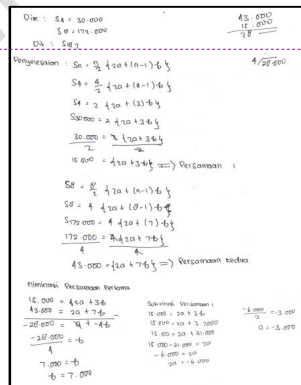 Dik : S4 = 30.000
S8 = 172.000
Dit : S8 ?
43.000
15.000
28
4/28.000
Penyelesaian : Sn = n/2 {2a + (n-1) b}
S4 = 4/2 {2a + (4-1) b}
S4 = 2 {2a + (3) b}
S30.000 = 2 {2a + 3b}
30.000 = 2 {2a + 3b}
2 2
15.000 = {2a + 3b} => Persamaan 1
S8 = 8/2 {2a + (n-1) b}
S8 = 4 {2a + (8-1) b}
S172.000 = 4 {2a + (7) b}
172.000 = 4 {2a + 7b}
4 4
43.000 = {2a + 7b} => Persamaan kedua
Eliminasi Persamaan Pertama
15.000 = 2a + 3b
43.000 = 2a + 7b
-28.000 = -4b
-28.000 = -b
4
7.000 = b
b = 7.000
Subtitusi Persamaan 1
15.000 = 2a + 3b
15.000 = 2a + 3.7000
15.00 = 2a + 21.000
15.000 - 21.000 = 2a
-6.000 = 2a
2a = -6.000
-6.000 = -3.000
2
a = -3.000